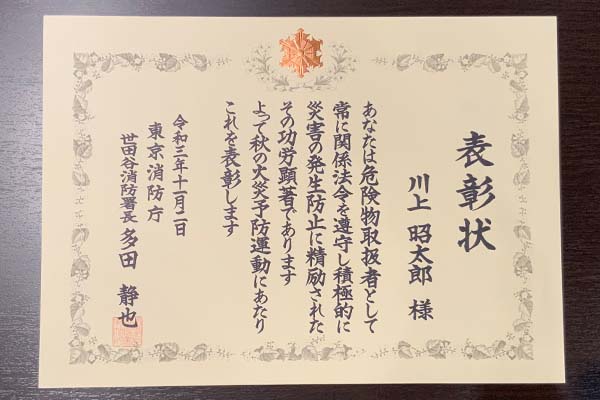 表彰状
川上 昭太郎 様
あなたは危険物取扱者として
常に関係法令を遵守し積極的に
災害の発生防止に精励された
その功労顕著であります
よって秋の火災予防運動にあたり
これを表彰します
令和三年十一月二日
東京消防庁
世田谷消防署長 多田 静也